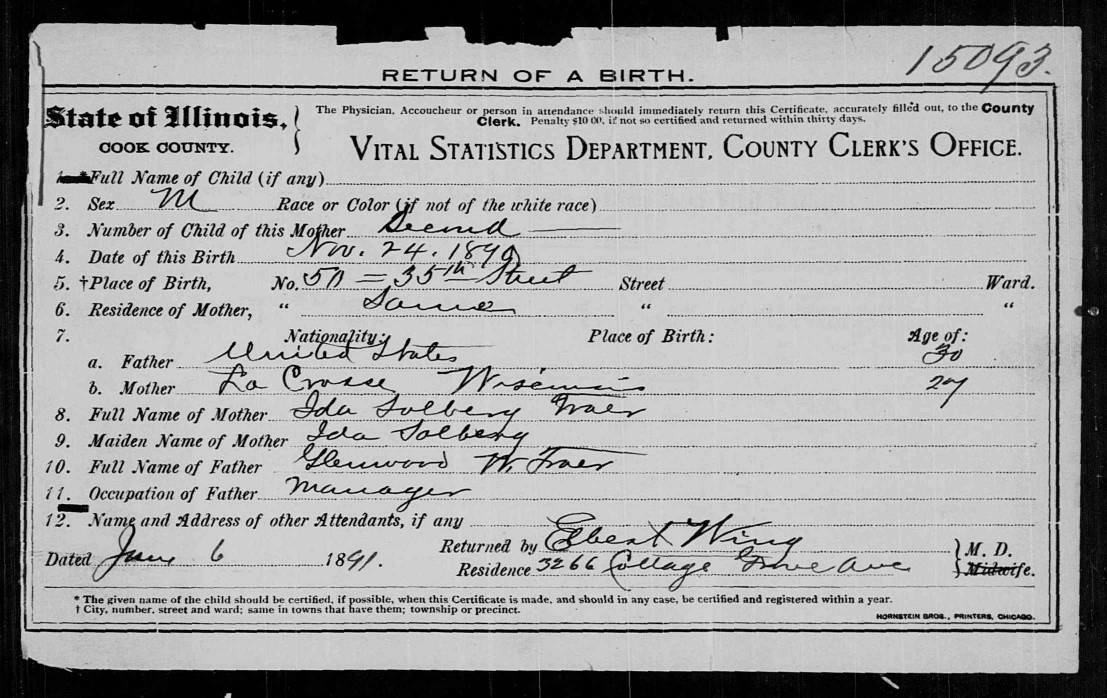 15093.
RETURN OF A BIRTH.
State of Illinois,
COOK COUNTY.
The Physician, Accoucheur or person in attendance should immediately return this Certificate, accurately filled out, to the County
Clerk. Penalty $10 00, if not so certified and returned within thirty days.
VITAL STATISTICS DEPARTMENT, COUNTY CLERK'S OFFICE.
1. *Full Name of Child (if any)
2. Sex M Race or Color (if not of the white race)
3. Number of Child of this Mother Second
4. Date of this Birth Nov. 24. 1890
5. †Place of Birth, No. 50 = 35th Street Street Ward.
6. Residence of Mother, " Same " "
7. Nationality: Place of Birth: Age of:
a. Father United States 30
b. Mother La Crosse Wisconsin 27
8. Full Name of Mother Ida Solberg Traer
9. Maiden Name of Mother Ida Solberg
10. Full Name of Father Glenwood W. Traer
11. Occupation of Father Manager
12. Name and Address of other Attendants, if any
Dated Jany 6 1891. Returned by Elbert Wing M. D.
Residence 3266 Cottage Grove Ave Midwife.
* The given name of the child should be certified, if possible, when this Certificate is made, and should in any case, be certified and registered within a year.
† City, number, street and ward; same in towns that have them; township or precinct.
HORNSTEIN BROS., PRINTERS, CHICAGO.